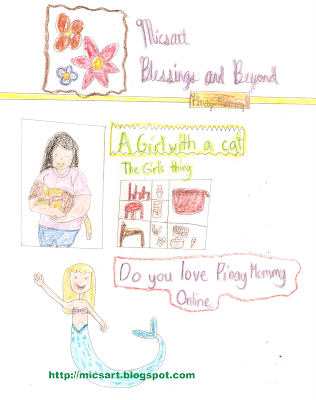 Micsart
Blessings and Beyond
Pinay Mommy
A Girl with a cat
The Girls thing
Do you love Pinay Mommy
Online
http://micsart.blogspot.com